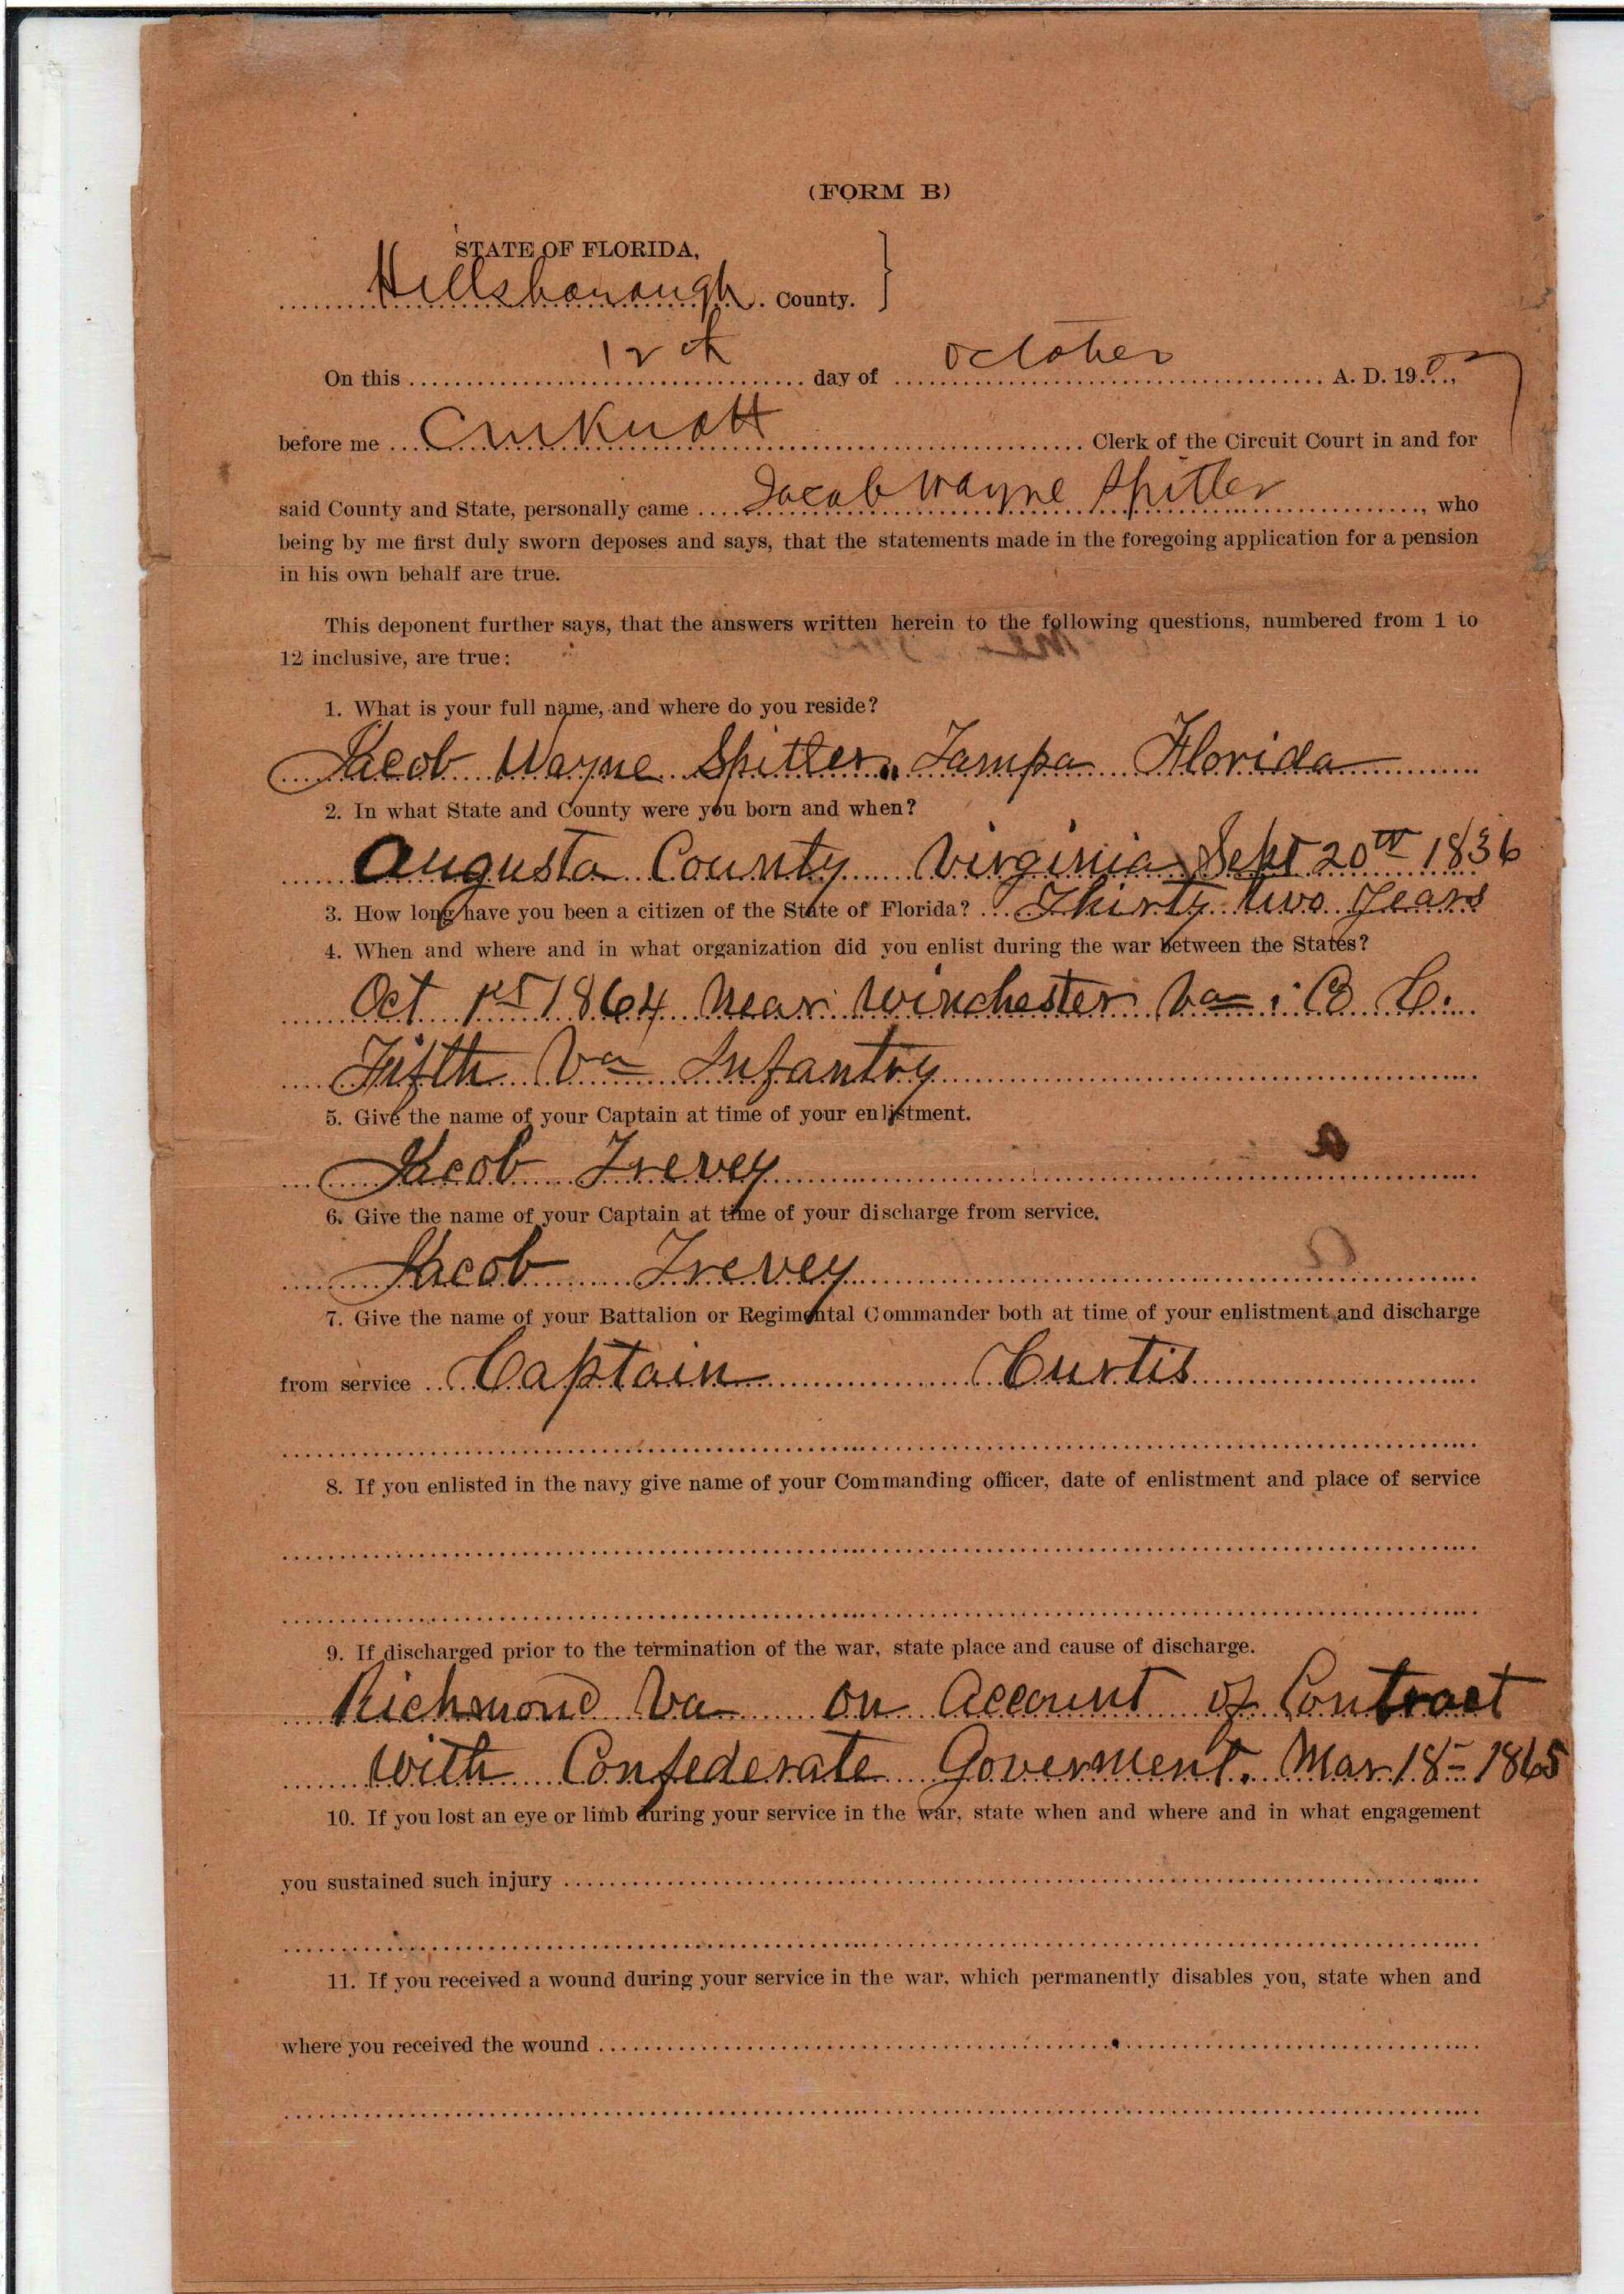 (FORM B)
STATE OF FLORIDA,
Hillsborough County.
On this 12th day of October A. D. 1907
before me C M Knott Clerk of the Circuit Court in and for
said County and State, personally came Jacob Wayne Spitler, who
being by me first duly sworn deposes and says, that the statements made in the foregoing application for a pension
in his own behalf are true.
This deponent further says, that the answers written herein to the following questions, numbered from 1 to
12 inclusive, are true:
1. What is your full name, and where do you reside?
Jacob Wayne Spitler. Tampa Florida
2. In what State and County were you born and when?
Augusta County Virginia Sept 20th 1836
3. How long have you been a citizen of the State of Florida? Thirty two Years
4. When and where and in what organization did you enlist during the war between the States?
Oct 1st 1864 Near Winchester Va : Co C.
Fifth Va Infantry
5. Give the name of your Captain at time of your enlistment.
Jacob Trevey
6. Give the name of your Captain at time of your discharge from service.
Jacob Trevey
7. Give the name of your Battalion or Regimental Commander both at time of your enlistment and discharge
from service Captain Curtis
8. If you enlisted in the navy give name of your Commanding officer, date of enlistment and place of service
9. If discharged prior to the termination of the war, state place and cause of discharge.
Richmond Va on Account of Contract
with Confederate Goverment. Mar 18 - 1865
10. If you lost an eye or limb during your service in the war, state when and where and in what engagement
you sustained such injury
11. If you received a wound during your service in the war, which permanently disables you, state when and
where you received the wound